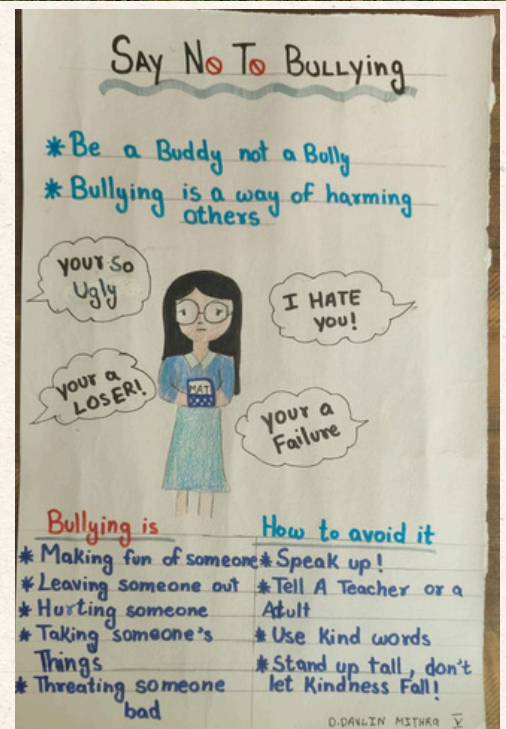 SAY NO TO BULLYing
* Be a Buddy not a Bully
* Bullying is a way of harming
others
your so
Ugly
I HATE
you!
your a
LOSER!
your a
Failure
MAT
Bullying is
* Making fun of someone
* Leaving someone out
* Hurting someone
* Taking someone's
Things
* Threating someone
bad
How to avoid it
* Speak up!
* Tell A Teacher or a
Adult
* Use Kind words
* Stand up tall, don't
let Kindness Fall!
D.DAVLIN MITHRA V